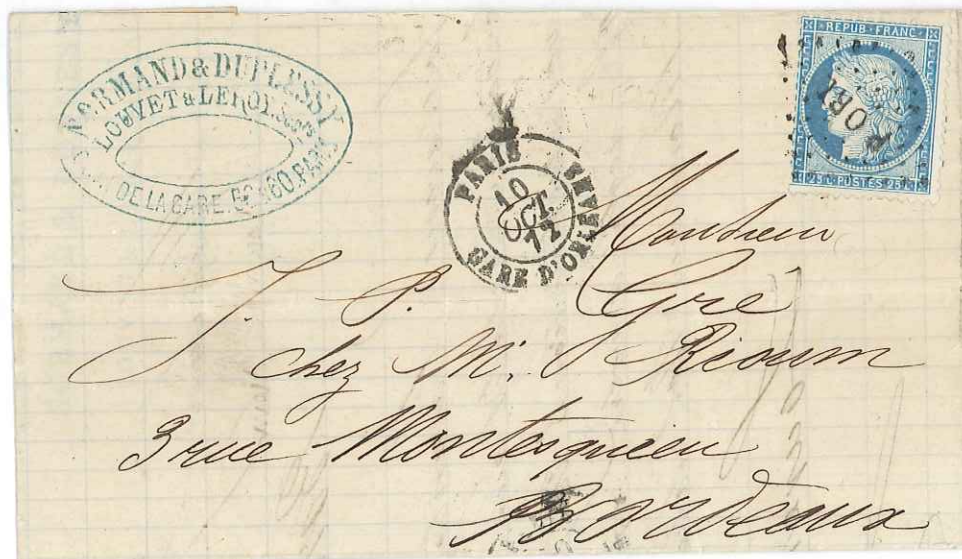 NORMAND & DUPLESSY
LOUVET & LEROY, Sucrs
DE LA GARE. 60. PARIS
REPUB · FRANC ·
25 C · POSTES · 25
OR1
PARIS
10
OCT.
72
GARE D'ORLEANS
Monsieur
J. P. Gré
chez Mr. Rioum
3 rue Montesquieu
Bordeaux